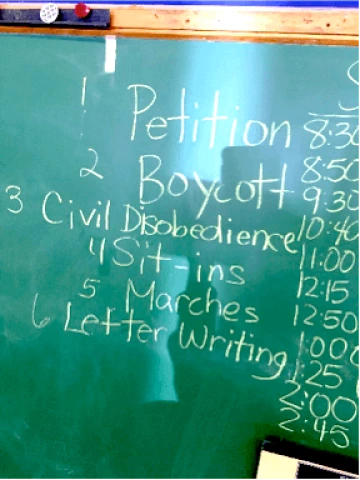 1 Petition
2 Boycott
3 Civil Disobedience
4 Sit-ins
5 Marches
6 Letter Writing
8:30
8:50
9:30
10:40
11:00
12:15
12:50
1:00
1:25
2:00
2:45